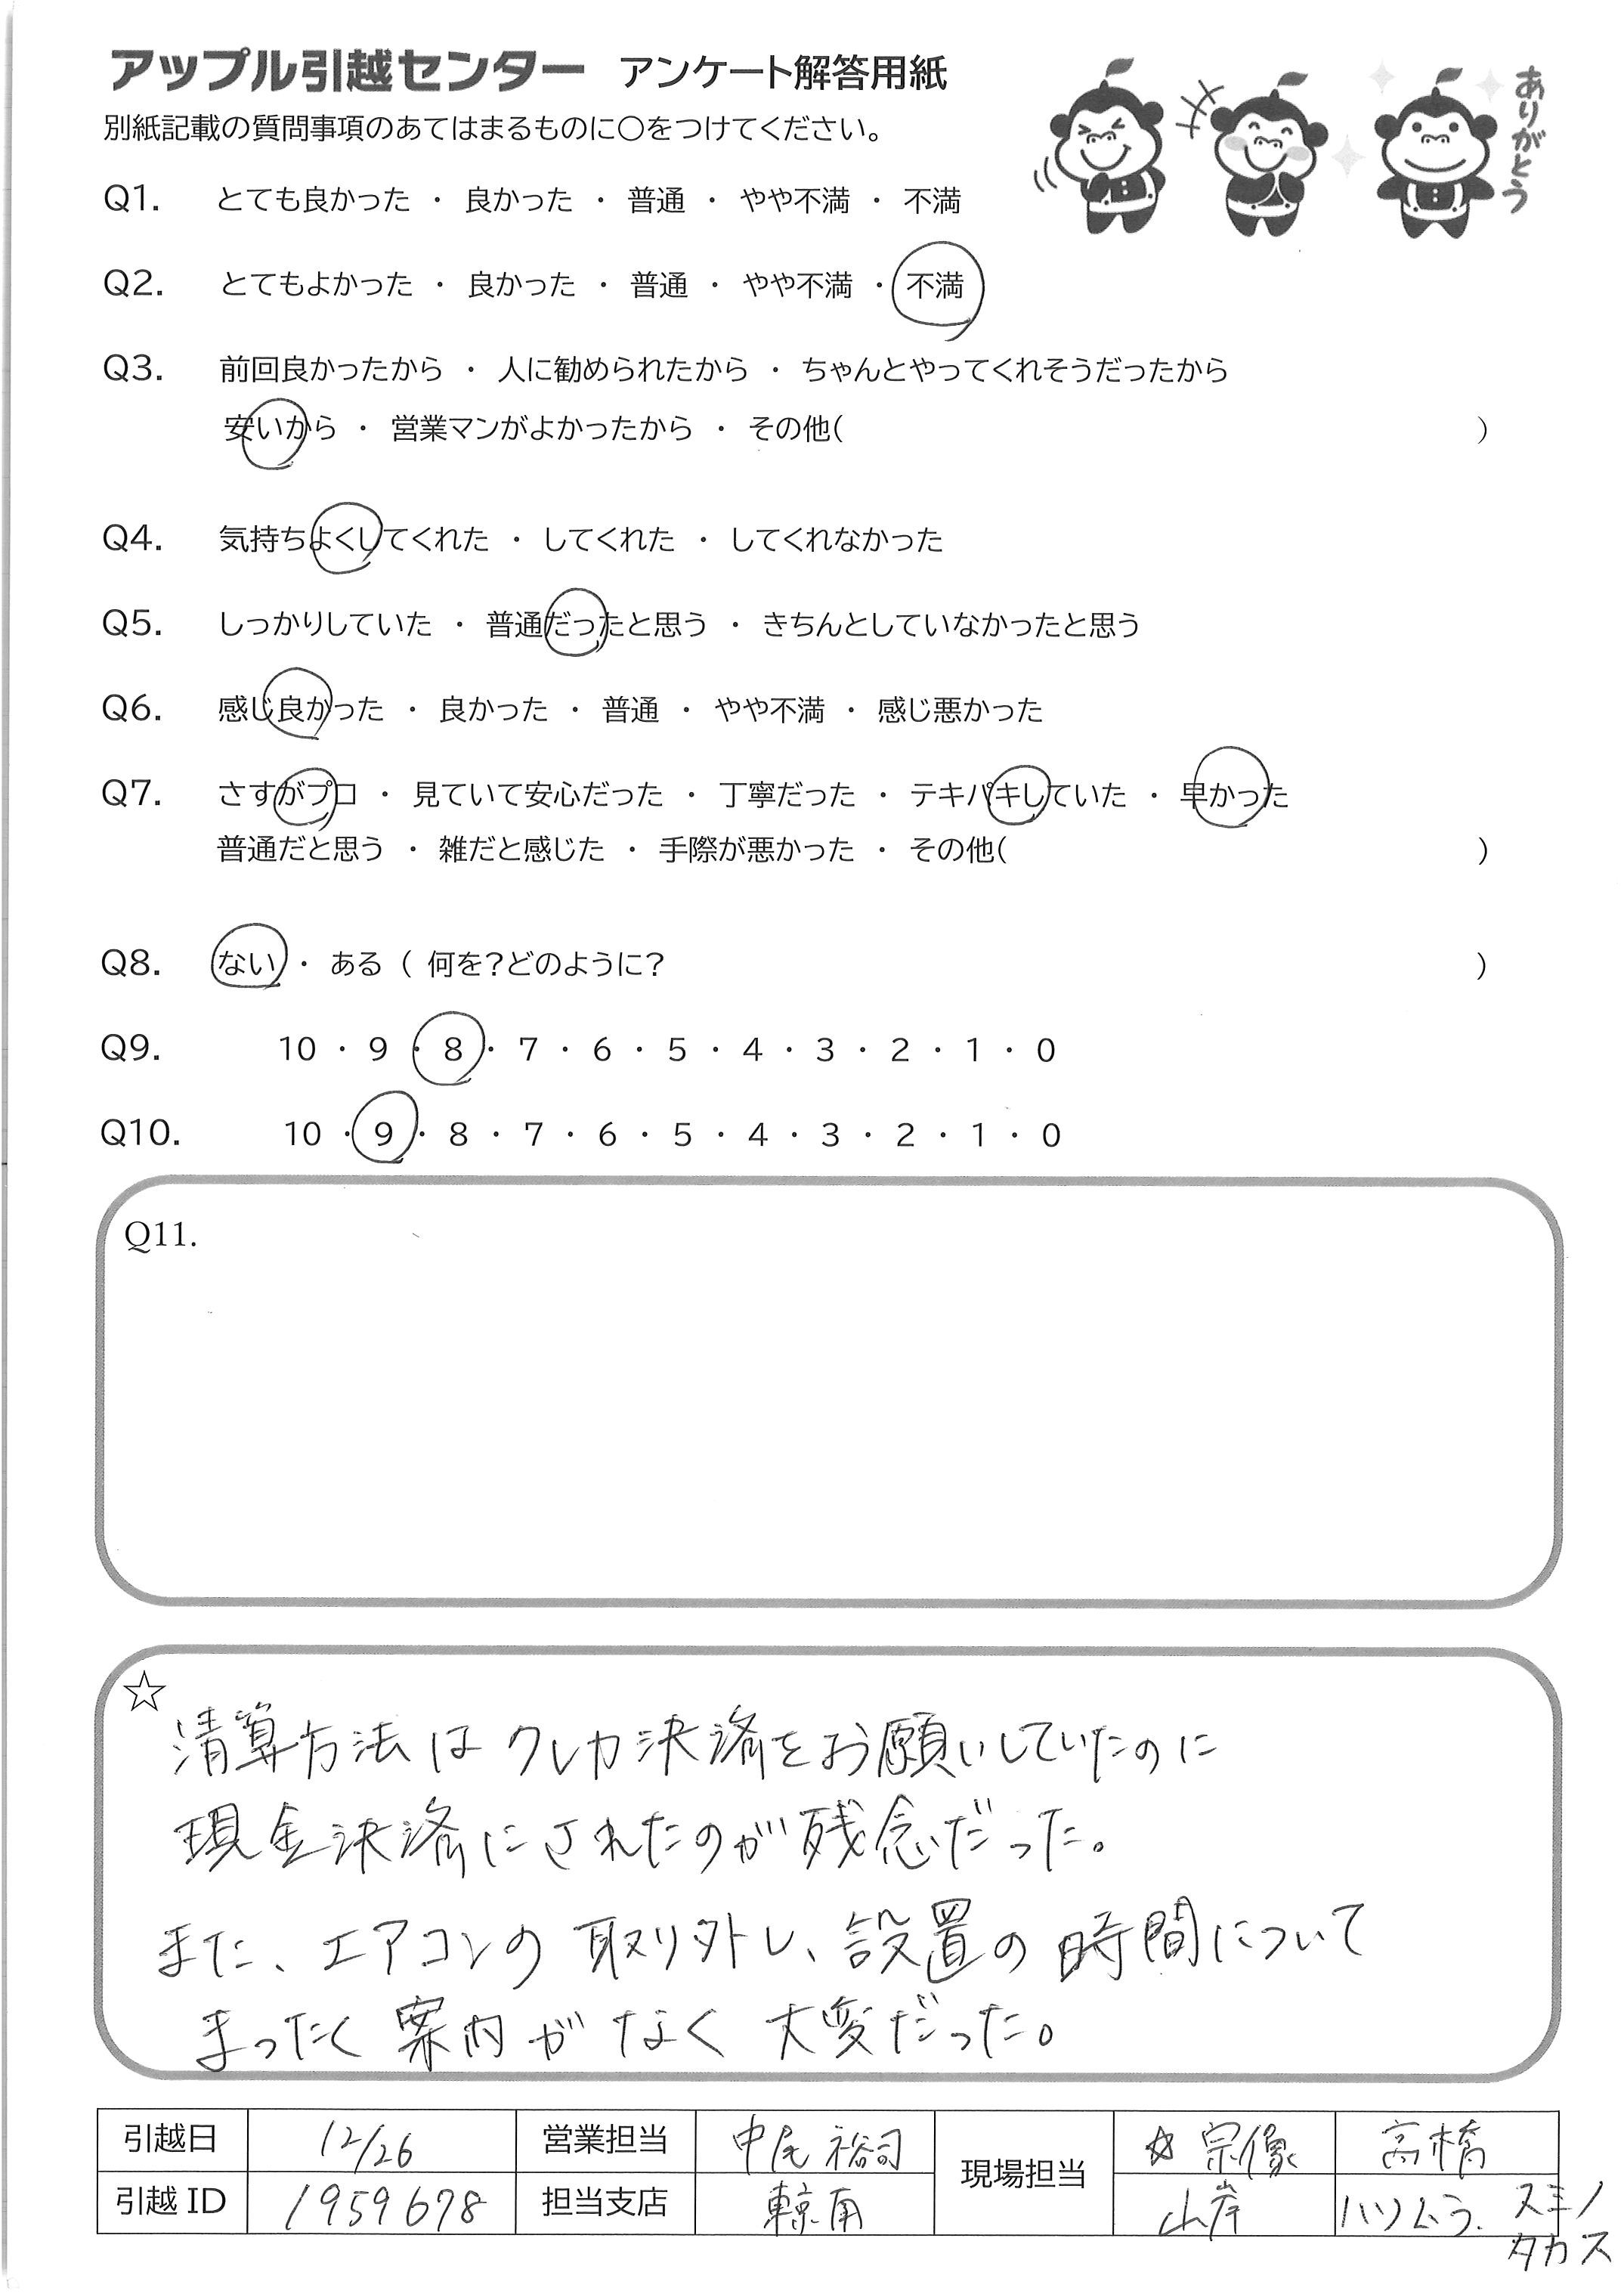 アップル引越センター アンケート解答用紙
別紙記載の質問事項のあてはまるものに○をつけてください。
ありがとう
Q1. とても良かった ・ 良かった ・ 普通 ・ やや不満 ・ 不満
Q2. とてもよかった ・ 良かった ・ 普通 ・ やや不満 ・ 不満
Q3. 前回良かったから ・ 人に勧められたから ・ ちゃんとやってくれそうだったから
安いから ・ 営業マンがよかったから ・ その他( )
Q4. 気持ちよくしてくれた ・ してくれた ・ してくれなかった
Q5. しっかりしていた ・ 普通だったと思う ・ きちんとしていなかったと思う
Q6. 感じ良かった ・ 良かった ・ 普通 ・ やや不満 ・ 感じ悪かった
Q7. さすがプロ ・ 見ていて安心だった ・ 丁寧だった ・ テキパキしていた ・ 早かった
普通だと思う ・ 雑だと感じた ・ 手際が悪かった ・ その他( )
Q8. ない ・ ある ( 何を?どのように? )
Q9. 10 ・ 9 ・ 8 ・ 7 ・ 6 ・ 5 ・ 4 ・ 3 ・ 2 ・ 1 ・ 0
Q10. 10 ・ 9 ・ 8 ・ 7 ・ 6 ・ 5 ・ 4 ・ 3 ・ 2 ・ 1 ・ 0
Q11.
☆
清算方法はクレカ決済をお願いしていたのに
現金決済にされたのが残念だった。
また、エアコンの取り外し、設置の時間について
まったく案内がなく大変だった。
引越日 12/26 営業担当 中尾 裕司 現場担当 ☆宗像 高橋
引越ID 1959678 担当支店 東京南 山岸 スミノ
タカス